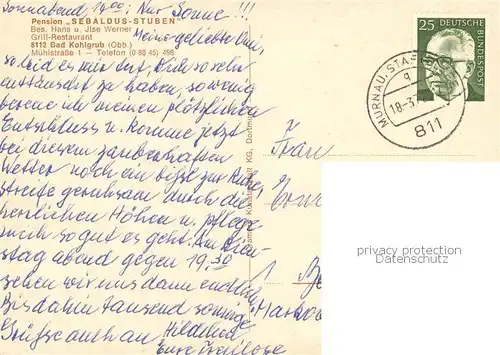 Sonnabend, 14.00; Nur Sonne!!!
Pension „SEBALDUS-STUBEN"
Bes. Hans u. Jlse Werner
Grill-Restaurant
8112 Bad Kohlgrub (Obb.)
Mühlstraße 1 — Telefon (0 88 45) 496
Meine geliebte
so leid es mir tut, Dich so sehr
enttäuscht zu haben, so wenig
bereue ich meinen plötzlichen
Entschluss u. komme jetzt
bei diesem zauberhaften
Wetter noch ein bißl zur Ruhe,
streife geruhsam durch die
herrlichen Höhen u. pflege
mich so gut es geht. Am Dien-
stag abend gegen 19.30
sehen wir uns dann endlich.
Bis dahin tausend sonnige
Grüße auch an
Eure
25
DEUTSCHE
BUNDESPOST
MURNAU, STAFFELSEE
18-3
811
Frau
privacy protection
Datenschutz